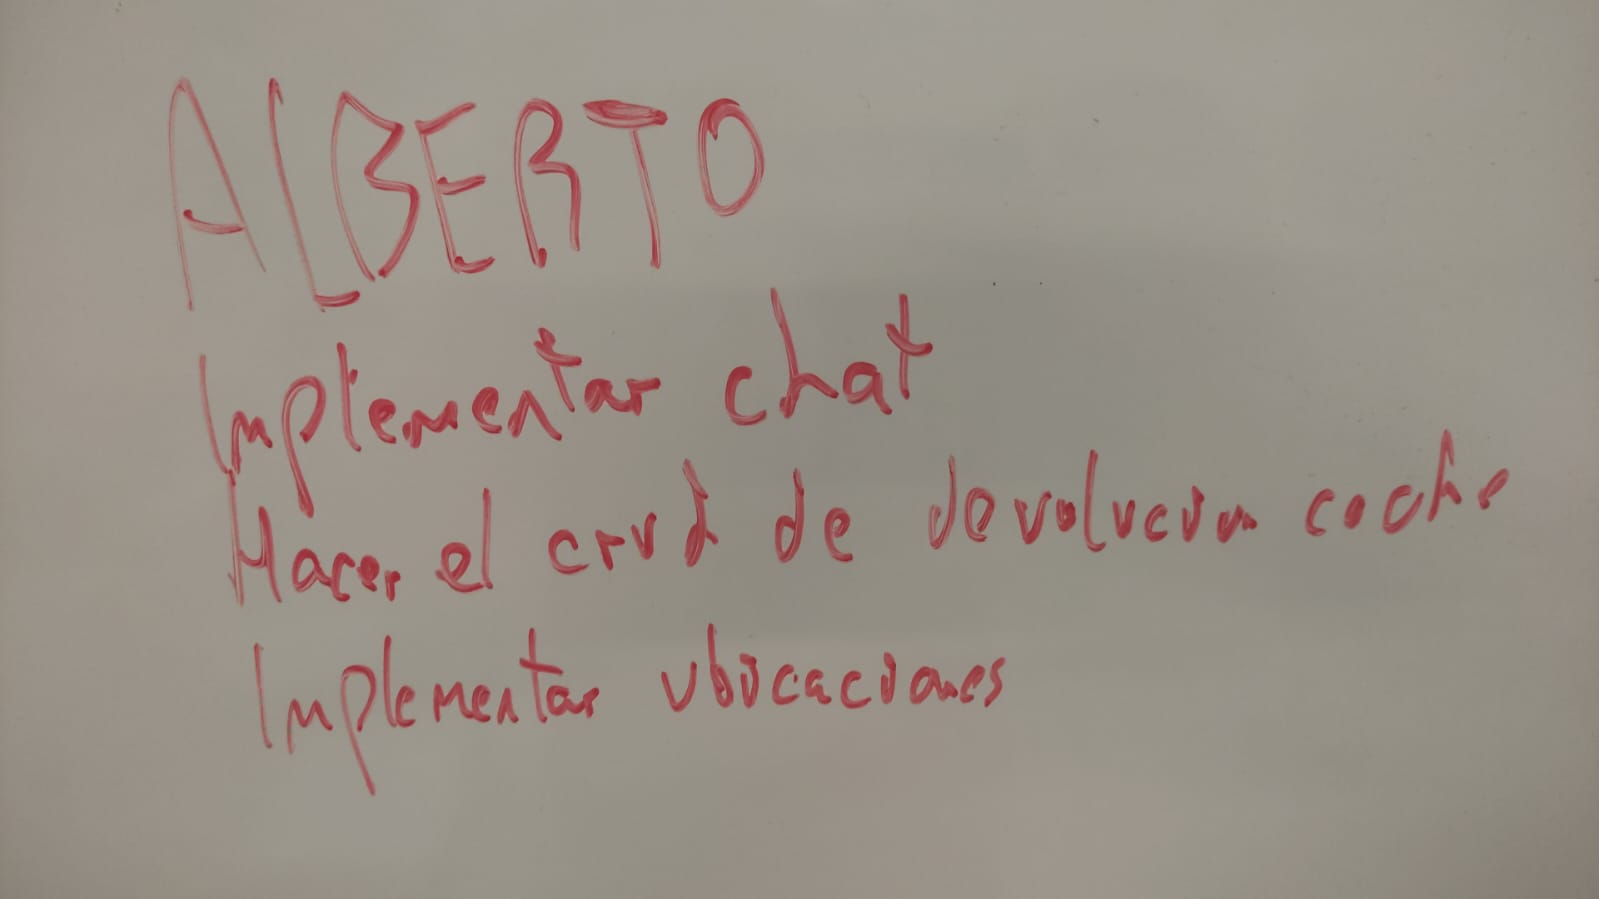 ALBERTO
Implementar chat
Hacer el crud de devolucion coche
Implementar ubicaciones